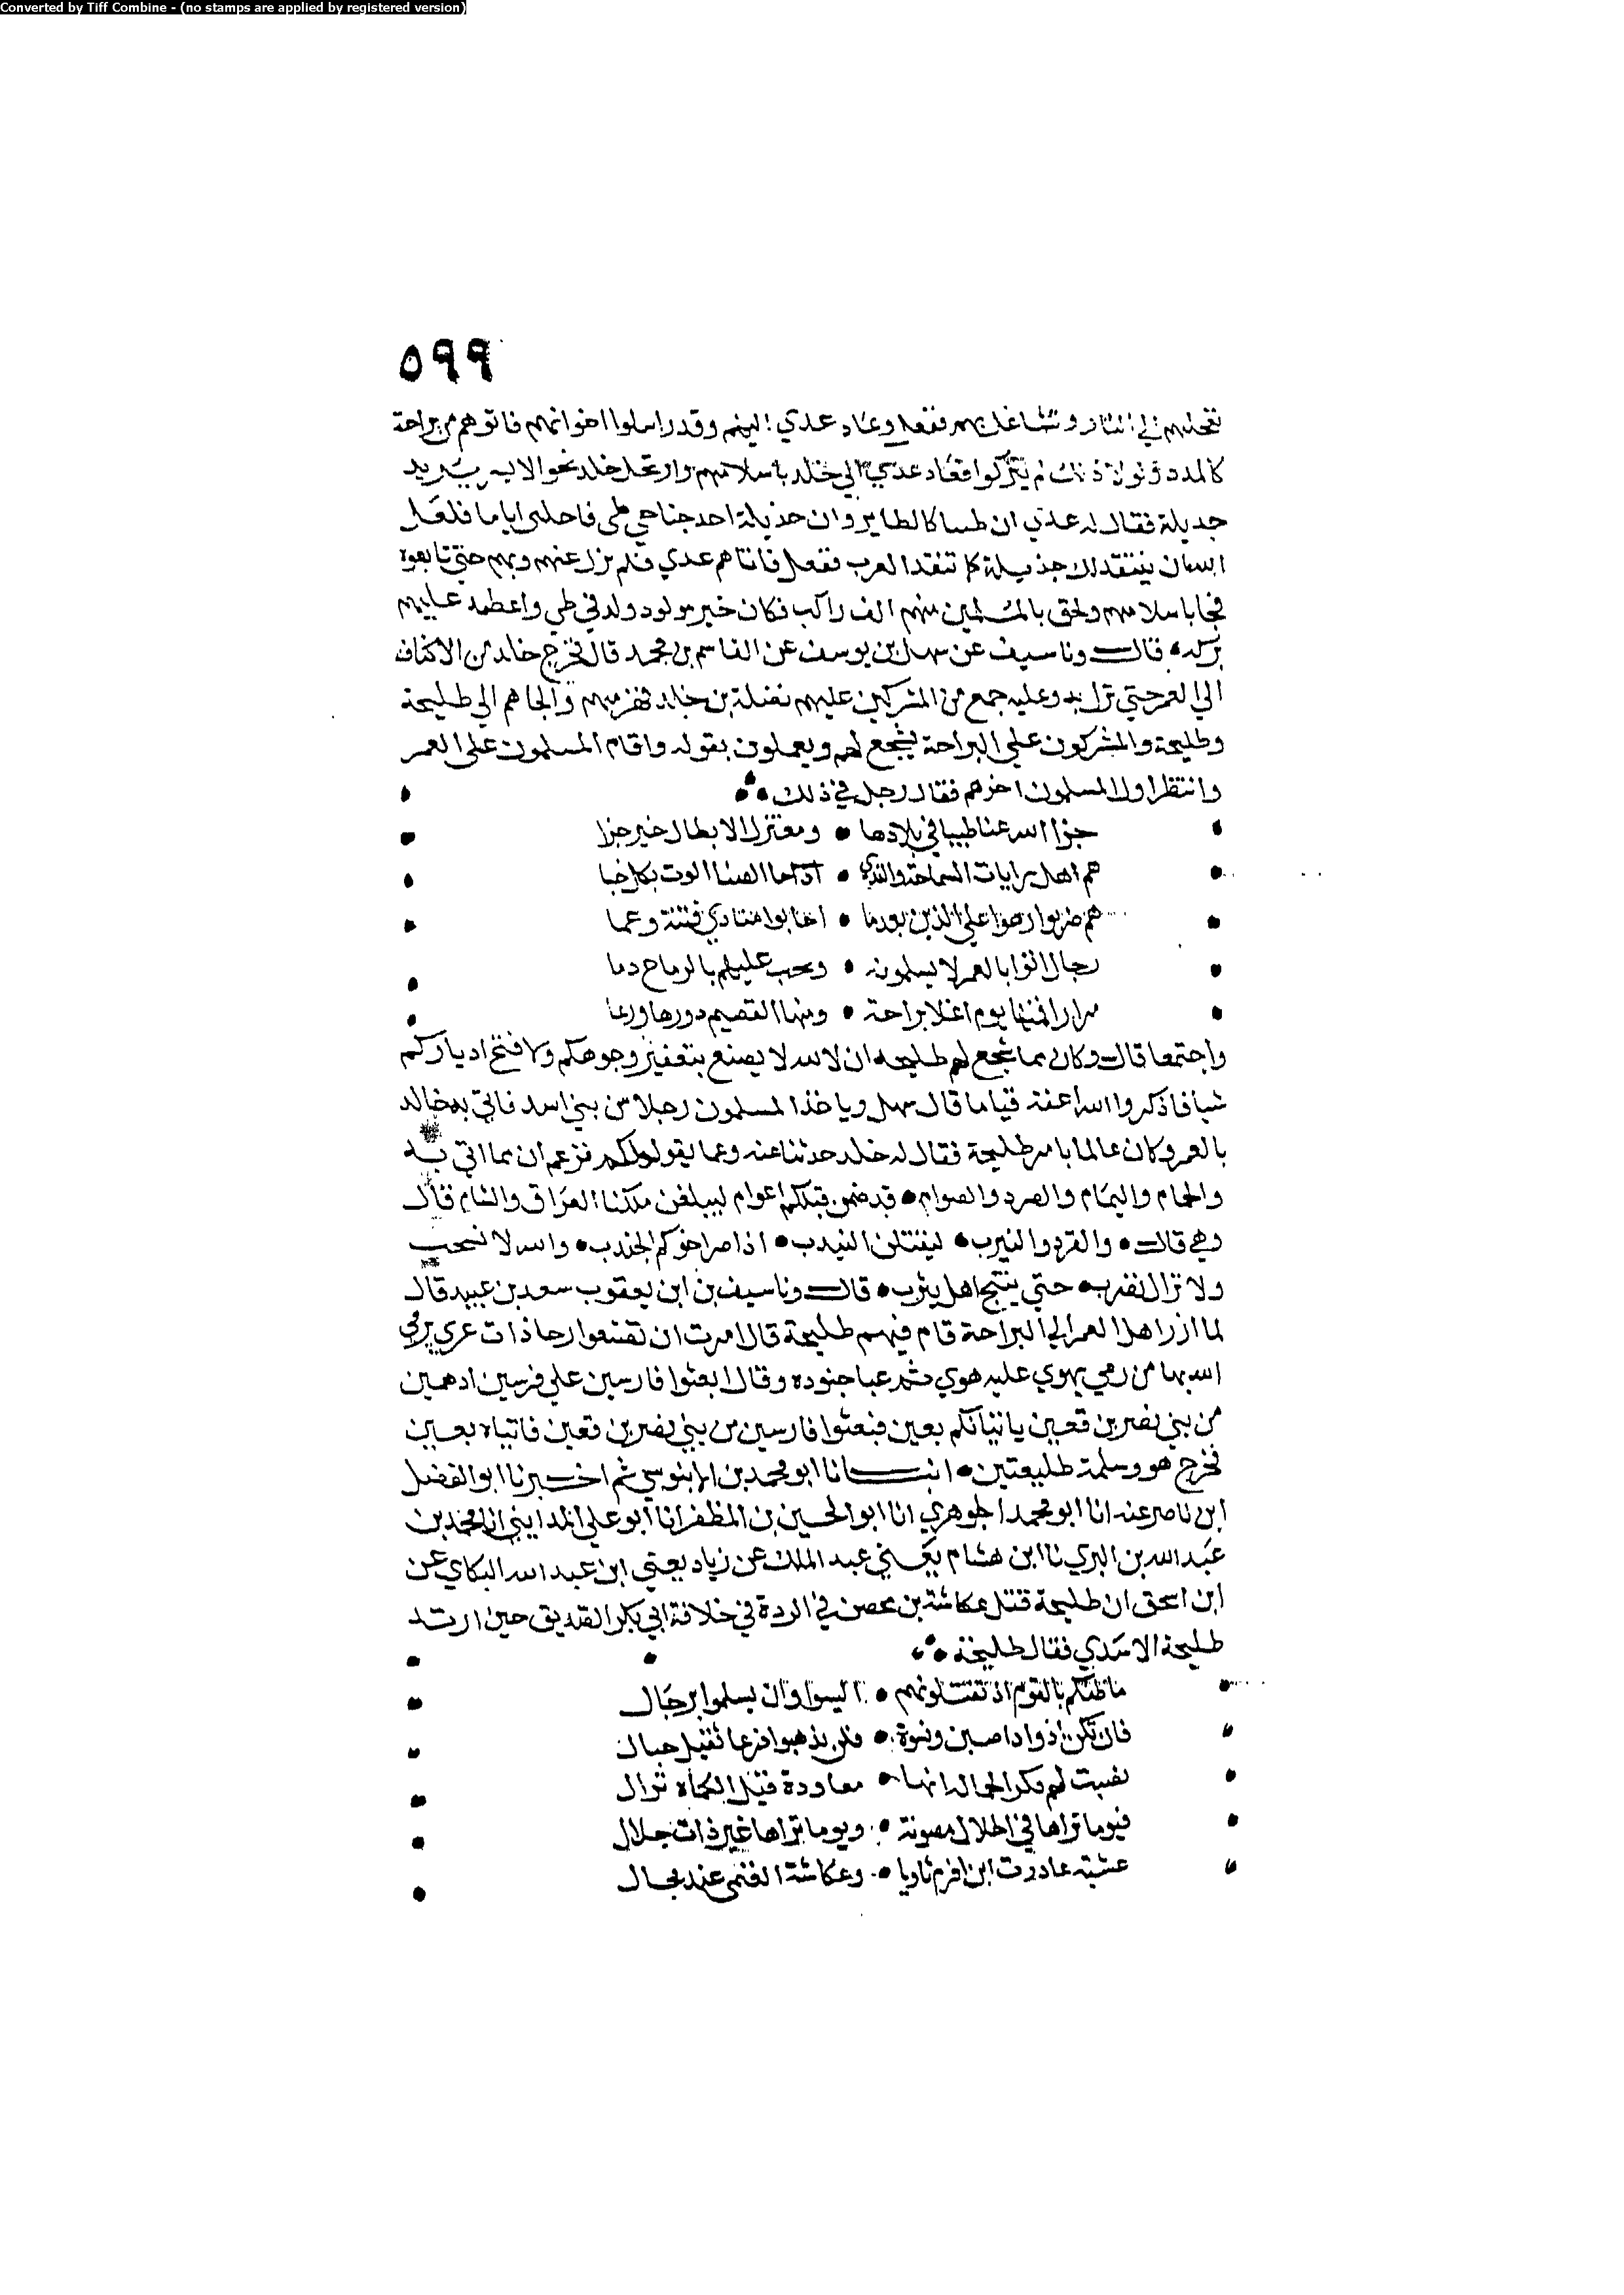 Converted by Tiff Combine - (no stamps are applied by registered version)
٥٩٩
ففعل وعاد عدي اليهم وقد راسلوا اخوانهم فاتوهم من براحة
كالمدد ولولا ذلك لم يتركوا فعاد عدي الي خلد باسلامهم وارتحل خلد نحو الا يريد
جديلة فقال له عدي ان طيا كالطاير وان جديلة احد جناحي طي فاجلني اياما فلعل
الله ان ينتقذ لك جديلة كما تنقذ العرب ففعل فاتاهم عدي فلم يزل عنهم وبهم حتي تابعوه
فجا باسلامهم ولحق بالمسلمين منهم الف راكب فكان خير مولود ولد في طي واعظمه عليهم
بركه • قال ونا سيف عن سهل بن يوسف عن القاسم بن محمد قال فخرج خالد من الاكناف
الي العمر حتي نزل به وعليه جمع من المشركين عليهم نضلة بن خالد فهزمهم والجاهم الي طليحة
وطليحة والمشركون علي البراحة يشجع لهم ويعملون بقوله واقام المسلمون علي العمر
وانتظر اول المسلمون اخرهم فقال رجل في ذلك
جزا الله عنا طييا في بلادها • ومعتزل الابطال خير جزا
هم اهل رايات السماحة والندي •
هم ضربوا علي الدين بعدما • اجابوا منادي فتنة وعما
رجال اتوا بالعمر لا يسلمونه • بالرماح دما
مرارا فمنها يوم اعلا براحة • ومنها القصيم
واجتمعا قال وكان مما شجع لهم طليحه ان لا الله لا يصنع بتعفير وجوهكم ولا فتح ادباركم
شيا فاذكروا الله اعفة قياما قال سهل وياخذ المسلمون رجلا من بني اسد فاتي به خالد
بالعمر وكان عالما بامر طليحة فقال له خلد حدثنا عنه وعما يقول لكم فزعم ان مما اتي به
والحمام واليمام والصرد والصوام • قد ضمن قبلكم اعوام ليبلغن ملكنا العراق والشام قال
وهي قال • والقرد والنيرب • ليقتلن النيدب • اذا صر اخوكم الجندب • والله لا نسحب
ولا نزال نضرب • حتي ينتج اهل يثرب • قال ونا سيف بن ابن يعقوب سعد بن عبيد قال
لما ارز اهل العمر الي البراحة قام فيهم طليحة قال امرت ان تصنعوا رحا ذات عري يرمي
الله بها من رمي يهوي عليه هوي ثم عبا جنوده وقال ابعثوا فارسين علي فرسين ادهمين
من بني نضر بن قعين ياتيانكم بعين فبعثوا فارسين من بني نضر بن قعين فاتياه بعين
فخرج هو وسلمة طليعتين • انبانا ابو محمد بن الابنوسي ثم اخبرنا ابو الفضل
ابن ناصر عنه انا ابو محمد الجوهري انا ابو الحسين بن المظفر انا ابو علي المدايني انا محمد بن
عبد الله بن البري نا ابن هشام يعني عبد الملك عن زياد يعني ابن عبد الله البكاي عن
ابن اسحق ان طليحة قتل عكاشة بن محصن في الردة في خلافة ابي بكر الصديق حين ارتد
طليحة الاسدي فقال طليحة
ما ظنكم بالقوم اذ تقتلونهم • اليسوا وان يسلموا برجال
فان تكن اذوادا صبن ونسوة • فلن يذهبوا فرعا بقتل حبال
نصبت لهم صدر الحمالة انها • معاودة قيل الكماة نزال
فيوما تراها في الجلال مصونة • ويوما تراها غير ذات جلال
عشية غادرت ابن اقرم ثاويا • وعكاشة الغنمي عند مجال